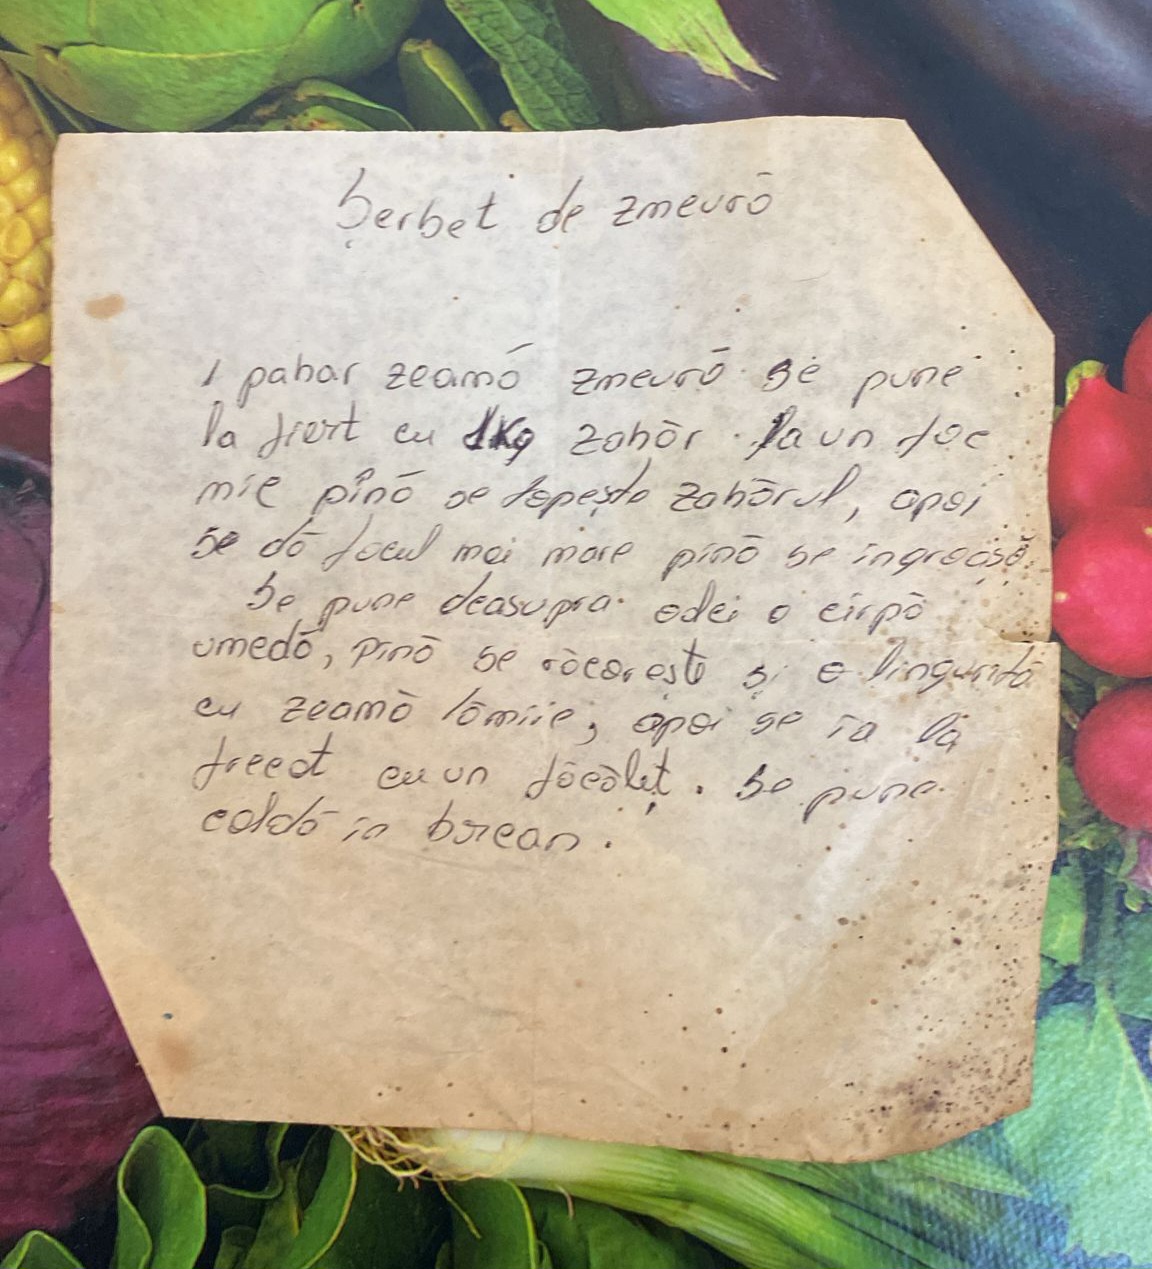 Șerbet de zmeură
1 pahar zeamă zmeură se pune
la fiert cu 1kg zahăr la un foc
mic pînă se topește zahărul, apoi
se dă focul mai mare pînă se îngroașă.
Se pune deasupra odei o cîrpă
umedă, pînă se răcorește și o linguriță
cu zeamă lămîie, apoi se ia la
frecat cu un făcăleț. Se pune
caldă în borcan.